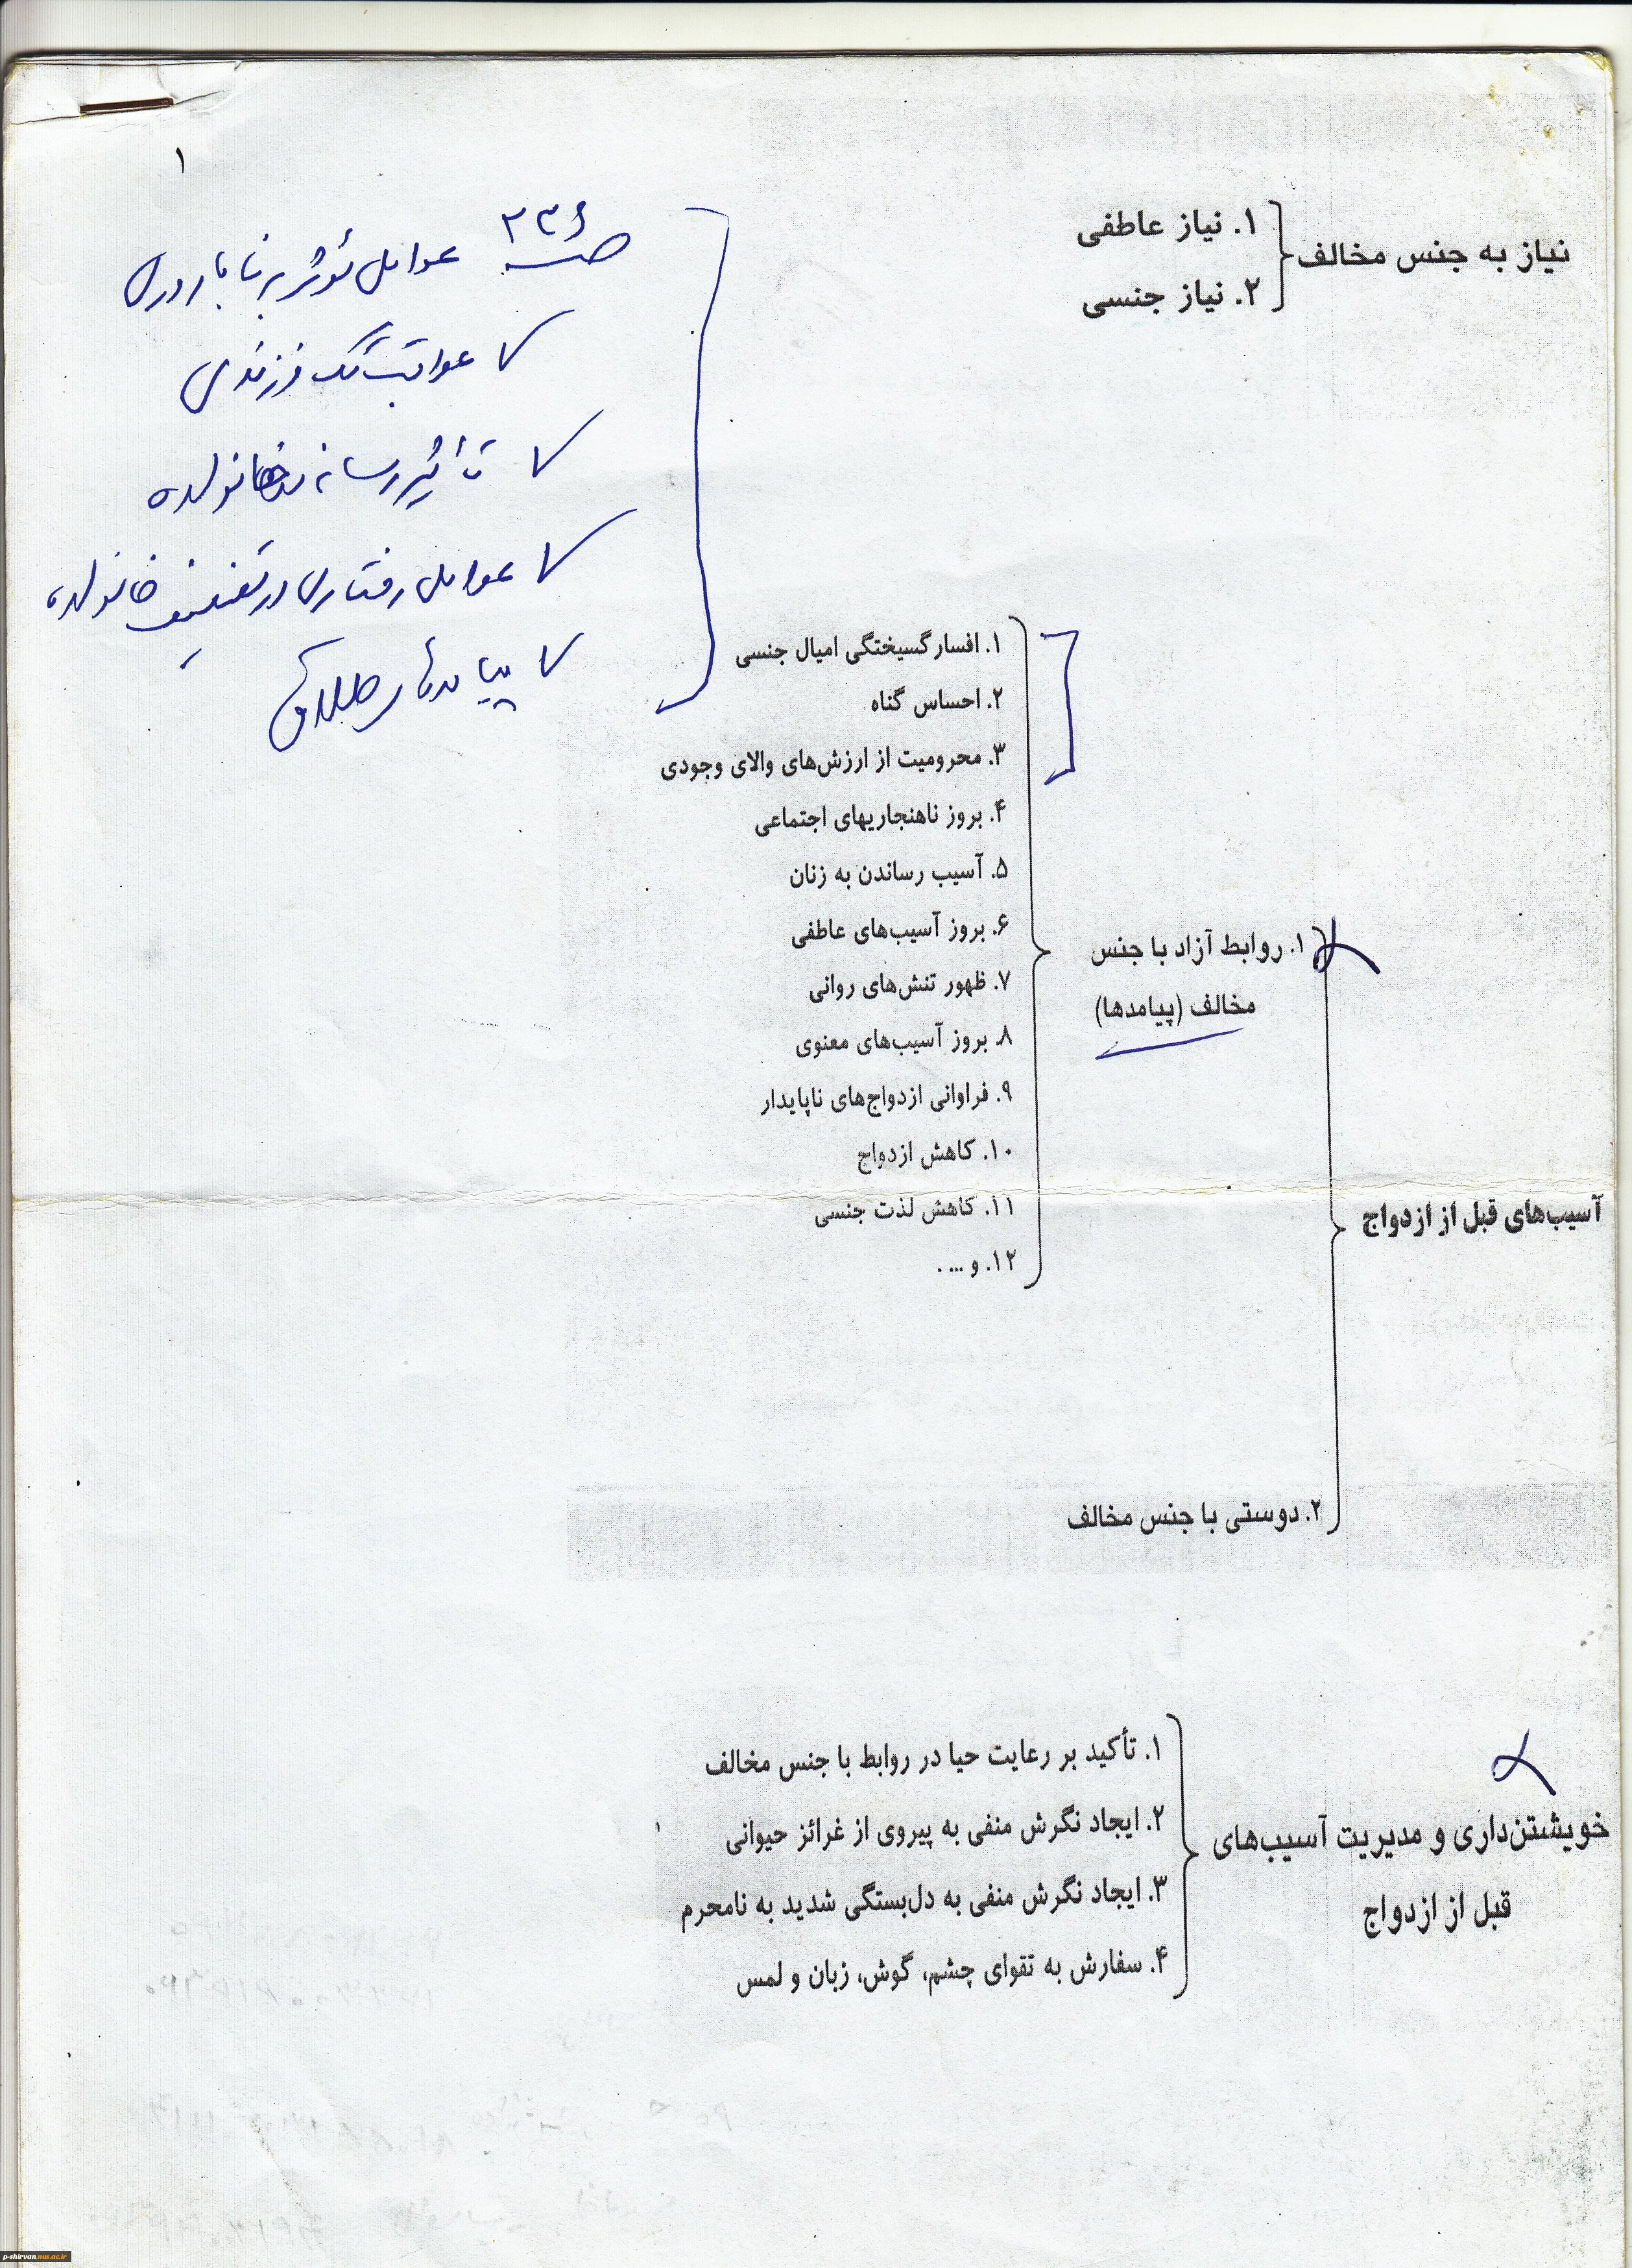 ۱
نیاز به جنس مخالف
۱. نیاز عاطفی
۲. نیاز جنسی
صـ ۲۳۶ عوامل مؤثر بر ناباروری
عواقب تک فرزندی
تأثیر رسانه خانواده
عوامل رفتاری در تضعیف خانواده
پیامدهای طلاق
آسیب‌های قبل از ازدواج
۱. روابط آزاد با جنس
مخالف (پیامدها)
۱. افسارگسیختگی امیال جنسی
۲. احساس گناه
۳. محرومیت از ارزش‌های والای وجودی
۴. بروز ناهنجاریهای اجتماعی
۵. آسیب رساندن به زنان
۶. بروز آسیب‌های عاطفی
۷. ظهور تنش‌های روانی
۸. بروز آسیب‌های معنوی
۹. فراوانی ازدواج‌های ناپایدار
۱۰. کاهش ازدواج
۱۱. کاهش لذت جنسی
۱۲. و ... .
۲. دوستی با جنس مخالف
خویشتن‌داری و مدیریت آسیب‌های
قبل از ازدواج
۱. تأکید بر رعایت حیا در روابط با جنس مخالف
۲. ایجاد نگرش منفی به پیروی از غرائز حیوانی
۳. ایجاد نگرش منفی به دل‌بستگی شدید به نامحرم
۴. سفارش به تقوای چشم، گوش، زبان و لمس
p-shirvan.nus.ac.ir